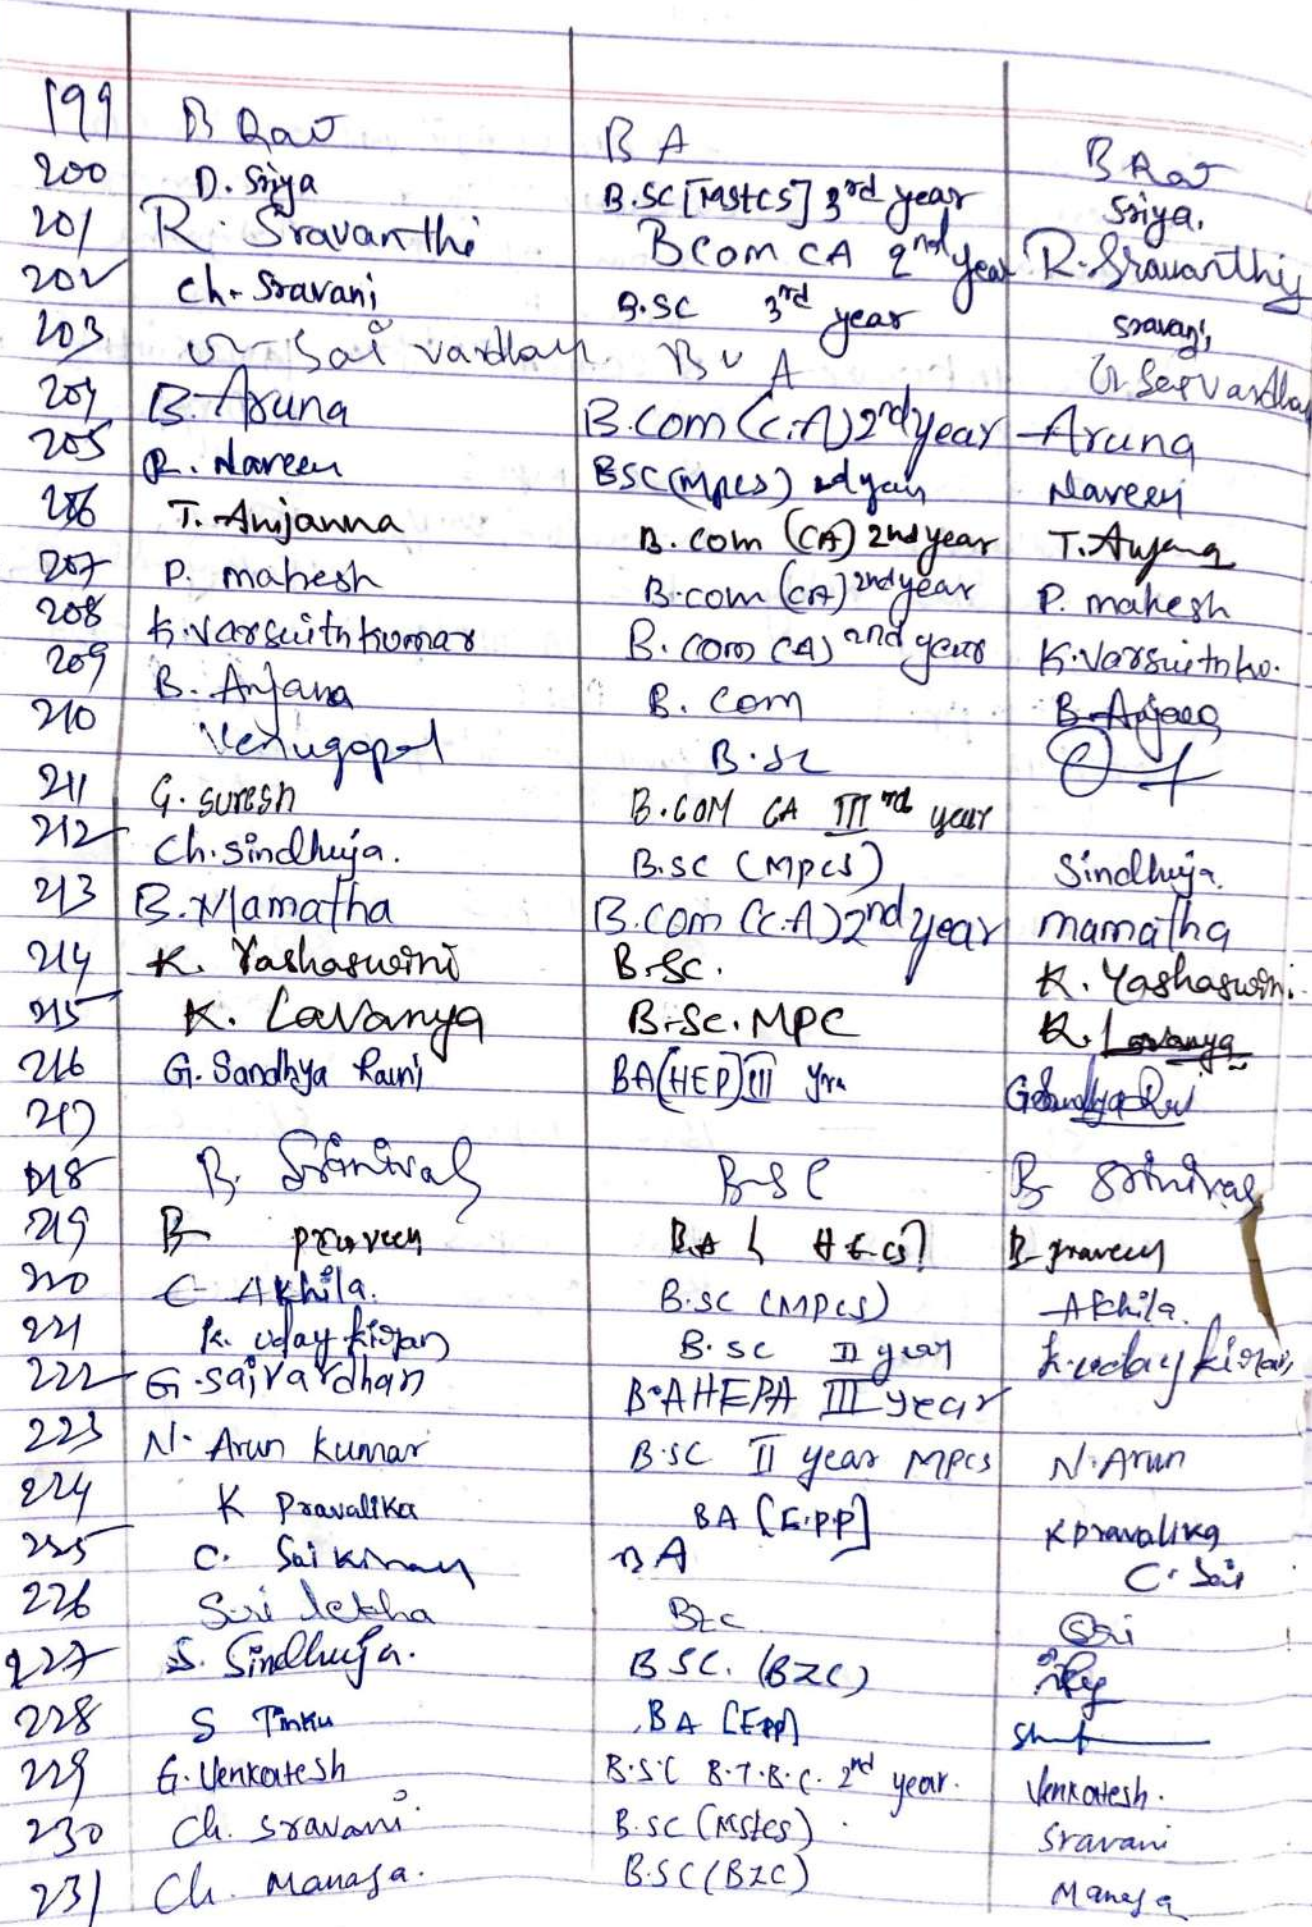 199 B Rav BA B Rav
200 D. Sriya B.SC [MStCS] 3rd year Sriya.
201 R. Sravanthi BCom CA 2nd year R. Sravanthi
202 Ch. Sravani B.SC 3rd year Sravani
203 Sai vardhan B A Sai Vardhan
204 B. Aruna B.Com (C.A) 2nd year Aruna
205 R. Naveen BSC (MPCS) Naveen
206 T. Anjanna B. Com (CA) 2nd year T. Anjana
207 P. mahesh B.com (CA) 2nd year P. mahesh
208 K. Varsuith kumar B. Com CA) 2nd year K. Varsuith
209 B. Anjana B. Com B. Anjana
210 Venugopal B.Sc
211 G. suresh B.COM CA III rd year
212 Ch. Sindhuja. B.SC (MPCS) Sindhuja.
213 B. Mamatha B.Com (C.A) 2nd year mamatha
214 K. Yashaswini B.Sc. K. Yashaswini.
215 K. Lavanya B.Sc. MPC K. Lavanya
216 G. Sandhya Rani BA (HEP) III G Sandhya Rani
217
218 B. Srinivas B-SC B Srinivas
219 B praveen B.A B praveen
220 C Akhila. B.SC (MPCS) Akhila.
221 K. uday kiran B.SC II year K. uday kiran
222 G. saivardhan B.A HEPA III year
223 N. Arun Kumar B.SC II year MPCS N. Arun
224 K Pravalika BA [E.PP] K pravalika
225 C. Sai Kiran BA C. Sai
226 Sri lekha BZC Sri
227 S. Sindhuja. B SC. (BZC)
228 S Tinku BA [EPP]
229 G. Venkatesh B.S.C B.T.B.C. 2nd year. Venkatesh.
230 Ch. Sravani B.SC (MStCS) Sravani
231 Ch. Manasa. B.SC (BZC) Manasa